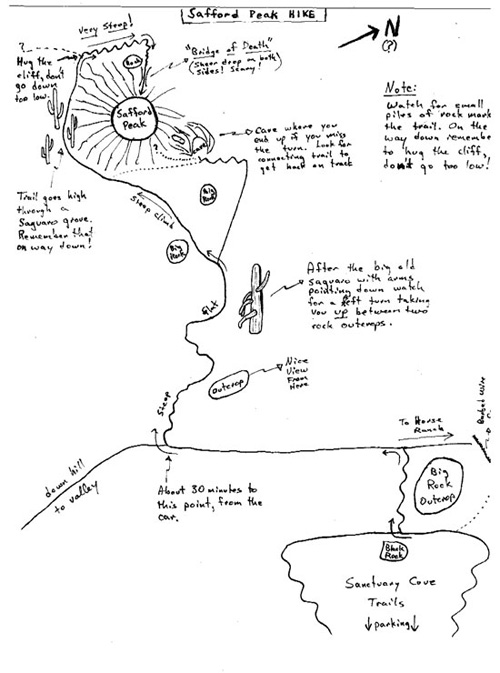 Safford Peak HIKE
N
(?)
Very Steep!
?
Hug the
cliff, don't
go down
too low.
Rock
"Bridge of Death"
(Sheer drop on both
sides! Scary!)
Safford
Peak
Note:
Watch for small
piles of rock mark
the trail. On the
way down remembe
to hug the cliff,
don't go too low!
Cave
?
Cave where you
end up if you miss
the turn. Look for
connecting trail to
get back on track
Trail goes high
through a
Saguaro grove.
Remember that
on way down!
Steep climb
Big
Rock
Big
Rock
After the big old
saguaro with arms
pointing down watch
for a left turn taking
you up between two
rock outcrops.
Flat
Outcrop
Nice
View
From
Here
Steep
To Horse
Ranch
Barbed Wire
down hill
to valley
About 30 minutes to
this point, from the
car.
Big
Rock
Outcrop
Black
Rock
Sanctuary Cove
Trails
parking